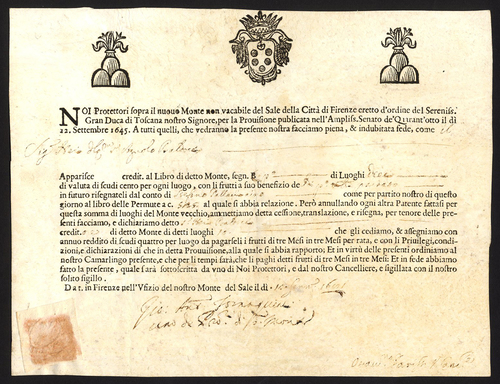 NOI Protettori sopra il nuouo Monte non vacabile del Sale della Città di Firenze eretto d'ordine del Sereniss.
Gran Duca di Toscana nostro Signore, per la Prouisione publicata nell'Ampliss. Senato de'Quarant'otto il dì
22. Settembre 1645. A tutti quelli, che vedranno la presente nostra facciamo piena, & indubitata fede, come il
Apparisce credit. al Libro di detto Monte, segn. B di Luoghi
di valuta di scudi cento per ogni luogo, con li frutti à suo benefizio de
in futuro risegnati dal conto di come per partito nostro di questo
giorno al libro delle Permute a c. al quale si abbia relazione. Però annullando ogni altra Patente fattasi per
questa somma di luoghi del Monte vecchio, ammettiamo detta cessione, translazione, e risegna, per tenore delle presenti
facciamo, e dichiariamo detto
credit. di detto Monte di detti luoghi che gli cediamo, & assegniamo con
annuo reddito di scudi quattro per luogo da pagarseli i frutti di tre Mesi in tre Mesi per rata, e con li Priuilegi, condizioni,
e dichiarazioni di che in detta Prouisione, alla quale si abbia rapporto; Et in virtù delle presenti ordiniamo al
nostro Camarlingo presente, e che per li tempi sarà, che li paghi detti frutti di tre Mesi in tre Mesi: Et in fede abbiamo
fatto la presente, quale sarà sottoscritta da vno di Noi Protettori, e dal nostro Cancelliere, e sigillata con il nostro
solito sigillo.
Dat. in Firenze nell'Vfizio del nostro Monte del Sale il dì
Gio: Ant.
uno de